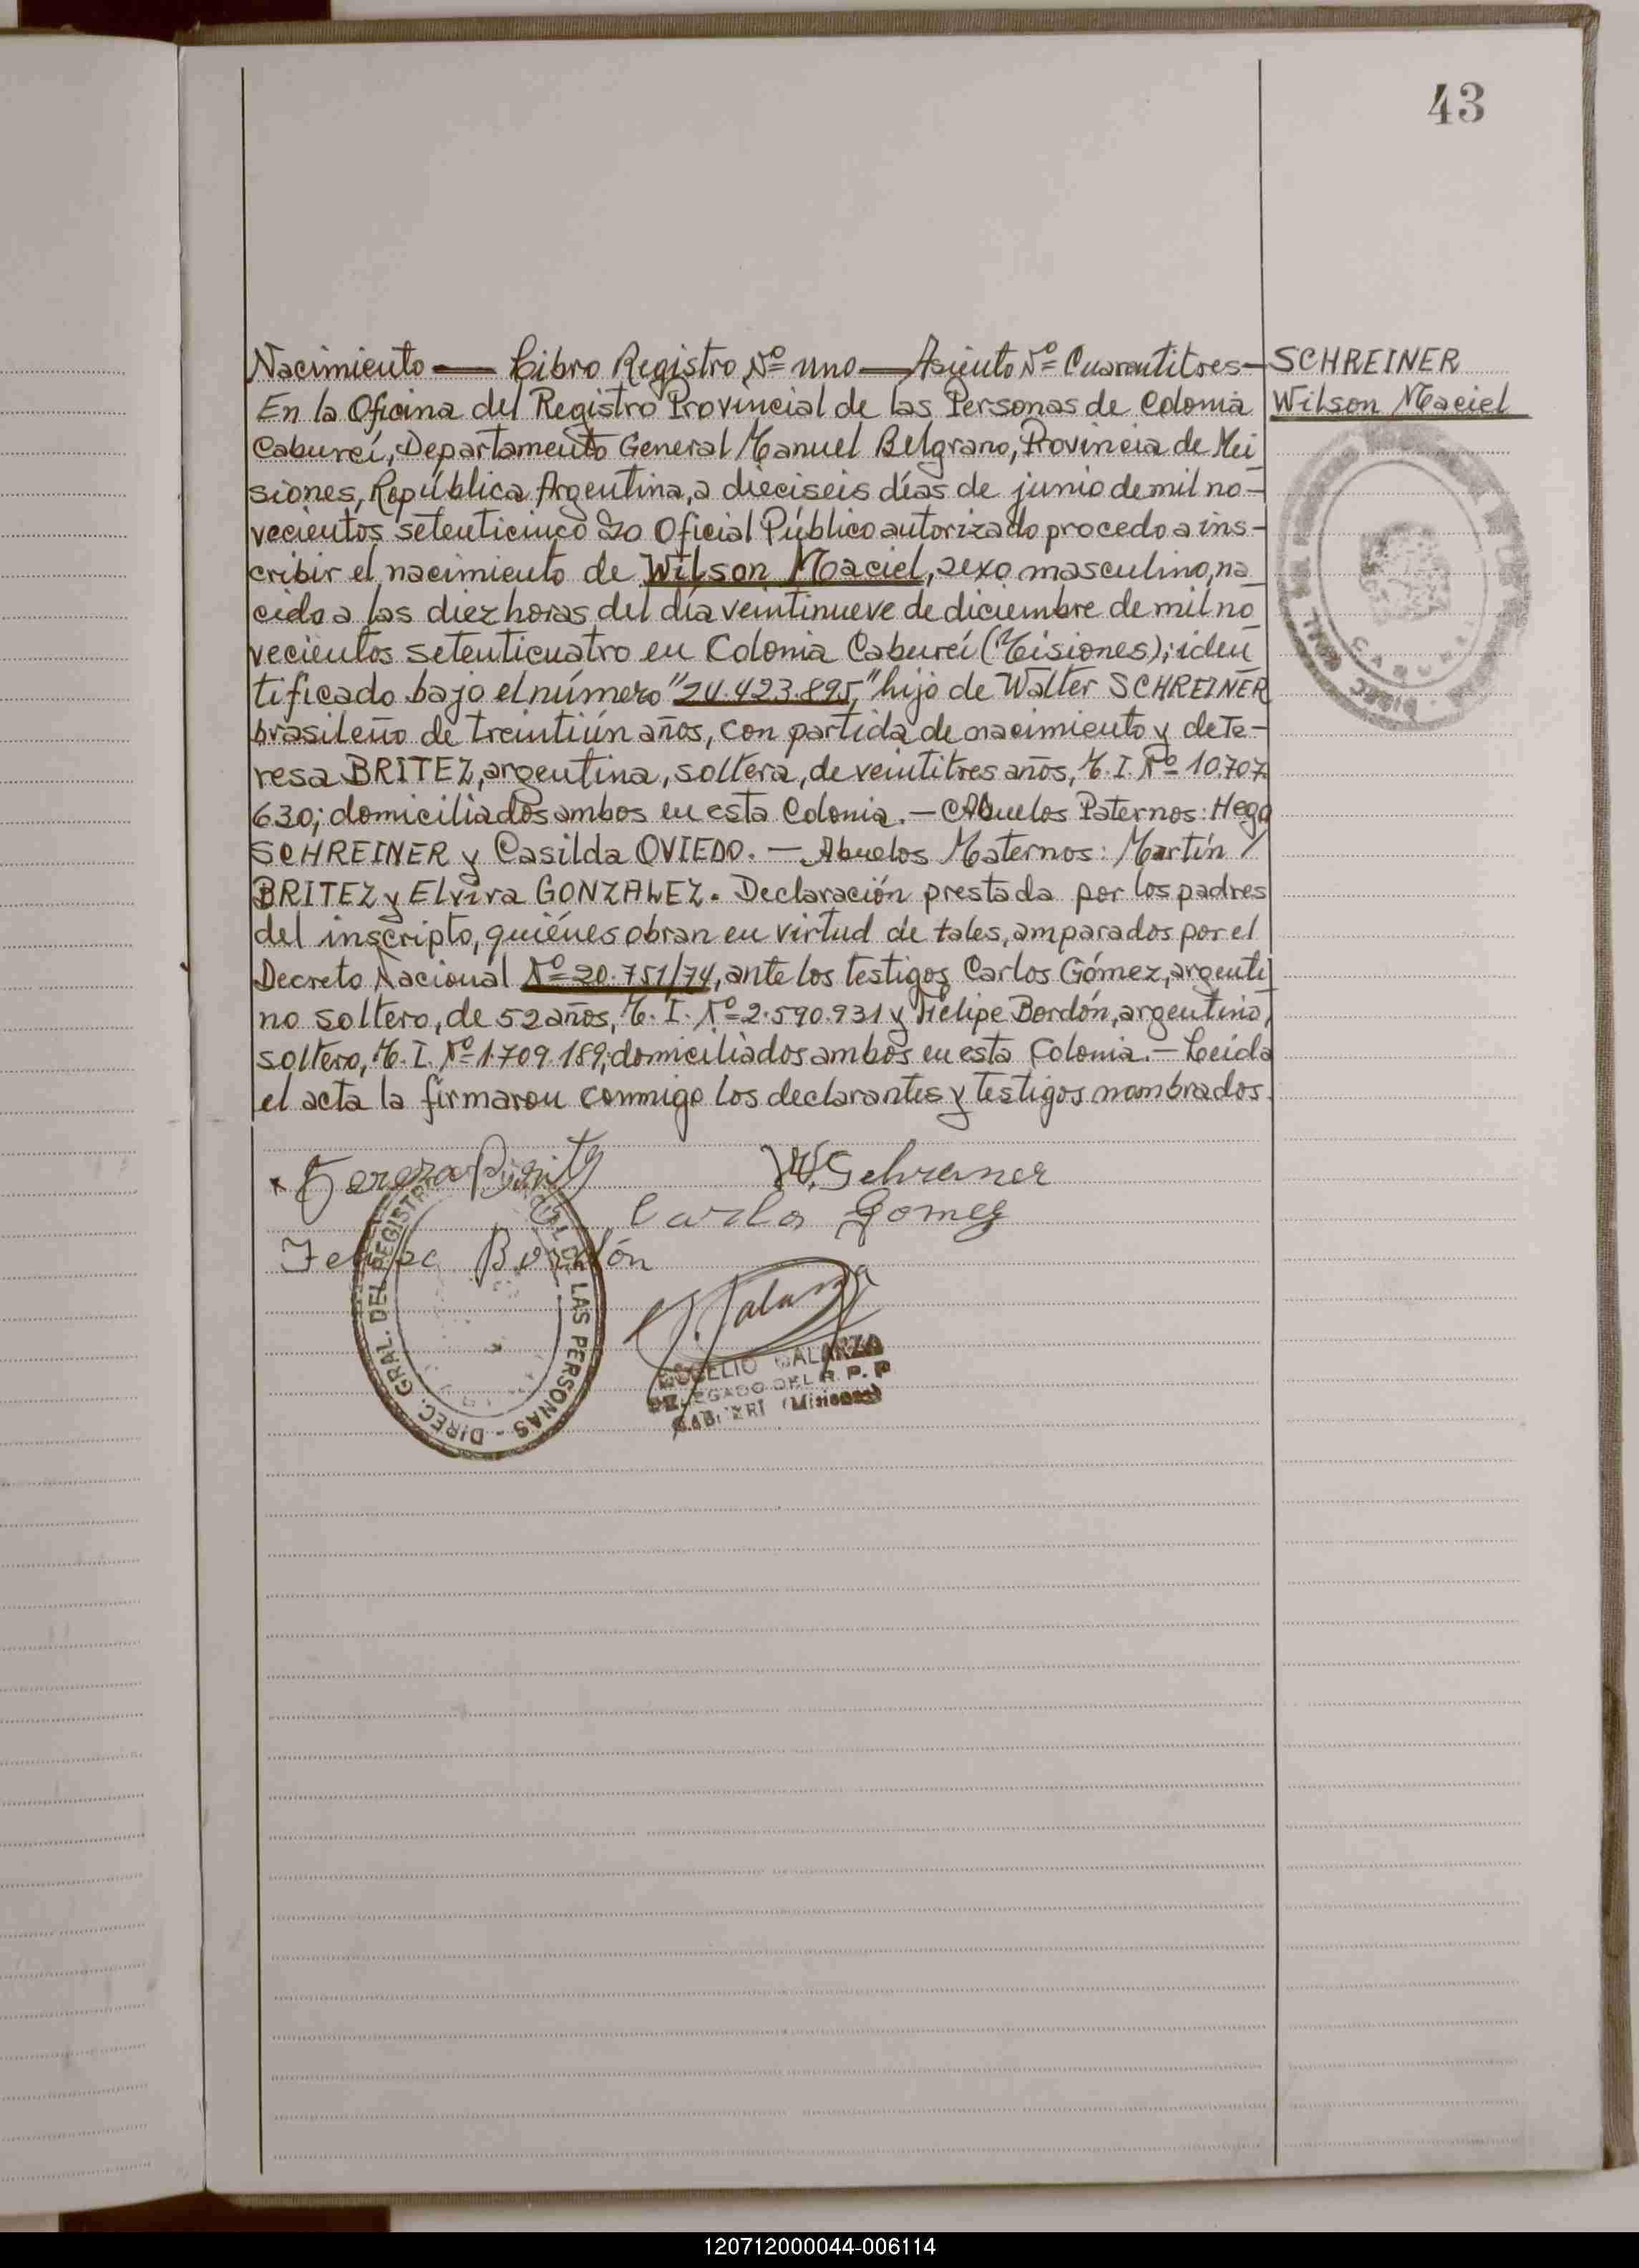 43
Nacimiento — Libro Registro Nº uno — Asiento Nº Cuarentitres —
SCHREINER
Wilson Maciel
En la Oficina del Registro Provincial de las Personas de Colonia
Cabureí, Departamento General Manuel Belgrano, Provincia de Mi
siones, República Argentina, a dieciseis días de junio de mil no-
vecientos setenticinco Yo Oficial Público autorizado procedo a ins-
cribir el nacimiento de Wilson Maciel, sexo masculino, na
cido a las diez horas del día veintinueve de diciembre de mil no
vecientos setenticuatro en Colonia Cabureí (Misiones); iden
tificado bajo el número "24.423.895," hijo de Walter SCHREINER
brasileño de treintiún años, con partida de nacimiento y de Te-
resa BRITEZ, argentina, soltera, de veintitres años, M.I. Nº 10.707.
630; domiciliados ambos en esta Colonia. — Abuelos Paternos: Hego
SCHREINER y Casilda OVIEDO. — Abuelos Maternos: Martín /
BRITEZ y Elvira GONZALEZ. Declaración prestada por los padres
del inscripto, quiénes obran en virtud de tales, amparados por el
Decreto Nacional Nº 20.751/74, ante los testigos Carlos Gómez, argenti
no soltero, de 52 años, M.I. Nº 2.590.931 y Felipe Bordón, argentino,
soltero, M.I. Nº 1.709.189; domiciliados ambos en esta Colonia. — Leída
el acta la firmaron conmigo los declarantes y testigos nombrados.
W. Schreiner
Carlos Gomez
Felipe Bordón
DIREC. GRAL. DEL REGISTRO LAS PERSONAS
R. Galarza
ROGELIO GALARZA
DELEGADO DEL R. P. P
CABUREI (Misiones)
120712000044-006114